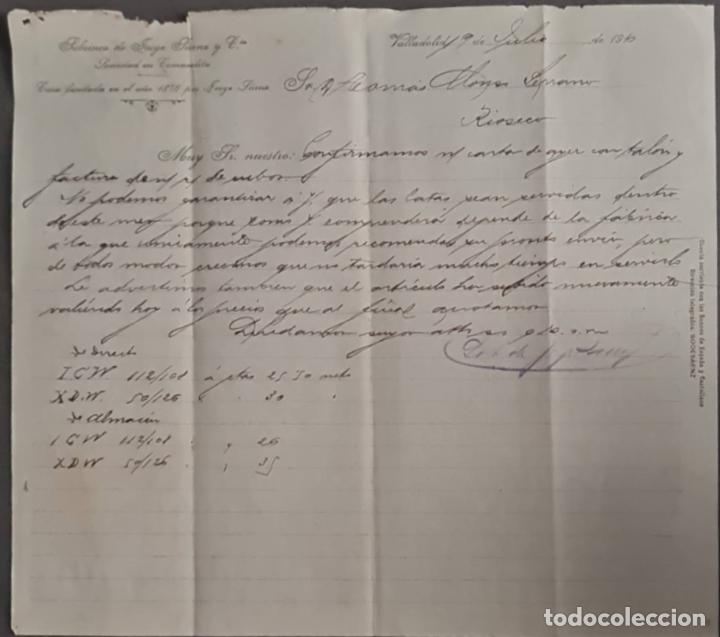 Sobrinos de Jorge Sáenz y Cía
Sociedad en Comandita
Casa fundada en el año 1870 por Jorge Sáenz
Valladolid 9 de Julio de 18
Sr. D. Alonso
Rioseco
Muy Sr. nuestro: Confirmamos n/ carta de ayer con talón y
factura de
No podemos garantizar á V. que las latas sean servidas dentro
de este mes porque como V. comprenderá depende de la fábrica
á la que únicamente podemos recomendar su pronto envío, pero
de todos modos creemos que no tardaría mucho tiempo en servirlo
Le advertimos también que el artículo ha subido nuevamente
valiendo hoy á los precios que al final anotamos
Quedamos suyos
Directo
I C W 112/108 á ptas 25 50 neto
X D W 50/126 " " 30 "
Almacén
I C W 112/108 " " 26
X D W 50/126 " " 35
Cuenta corriente con los Bancos de España y Castellano
Dirección telegráfica: SOGOESAENZ
todocoleccion.net